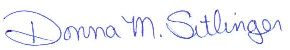 Donna M. Sitlinger